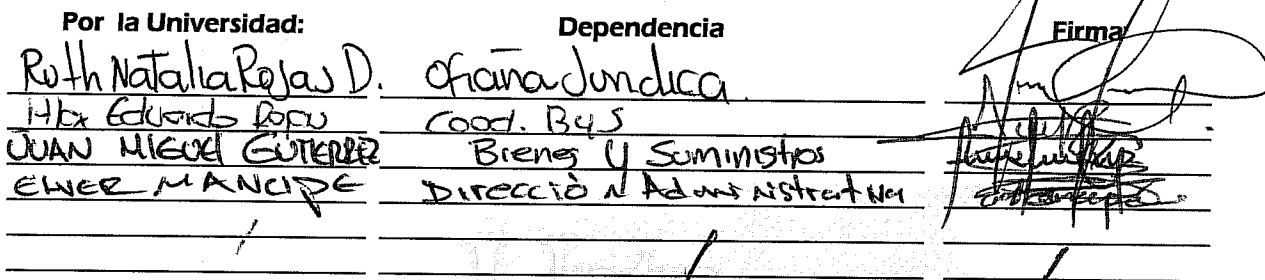 Por la Universidad: Dependencia Firma
Ruth Natalia Rojas D. Oficina Jurídica.
Eduardo Cood. BYS
JUAN MIGUEL GUTIERREZ Bienes y Suministros
ELVER MANCIPE Dirección Administrativa